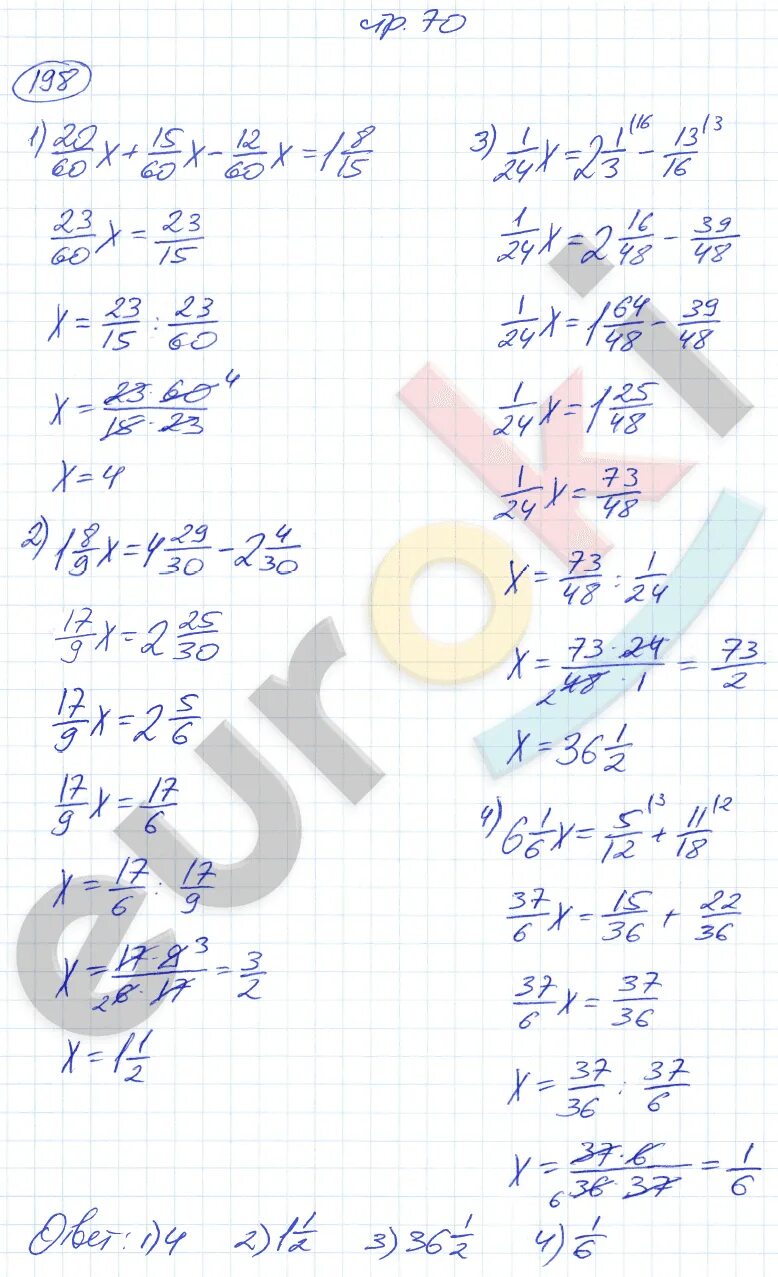 стр. 70
198
1) 20/60 x + 15/60 x - 12/60 x = 1 8/15
23/60 x = 23/15
x = 23/15 : 23/60
x = 23·60 4 / 15·23
x = 4
2) 1 8/9 x = 4 29/30 - 2 4/30
17/9 x = 2 25/30
17/9 x = 2 5/6
17/9 x = 17/6
x = 17/6 : 17/9
x = 17·9 3 / 2 6·17 = 3/2
x = 1 1/2
3) 1/24 x = 2 1/3 (16 - 13/16 (3
1/24 x = 2 16/48 - 39/48
1/24 x = 1 64/48 - 39/48
1/24 x = 1 25/48
1/24 x = 73/48
x = 73/48 : 1/24
x = 73·24 / 2 48·1 = 73/2
x = 36 1/2
4) 6 1/6 x = 5/12 (3 + 11/18 (2
37/6 x = 15/36 + 22/36
37/6 x = 37/36
x = 37/36 : 37/6
x = 37·6 / 6 36·37 = 1/6
Ответ: 1) 4 2) 1 1/2 3) 36 1/2 4) 1/6
euroki